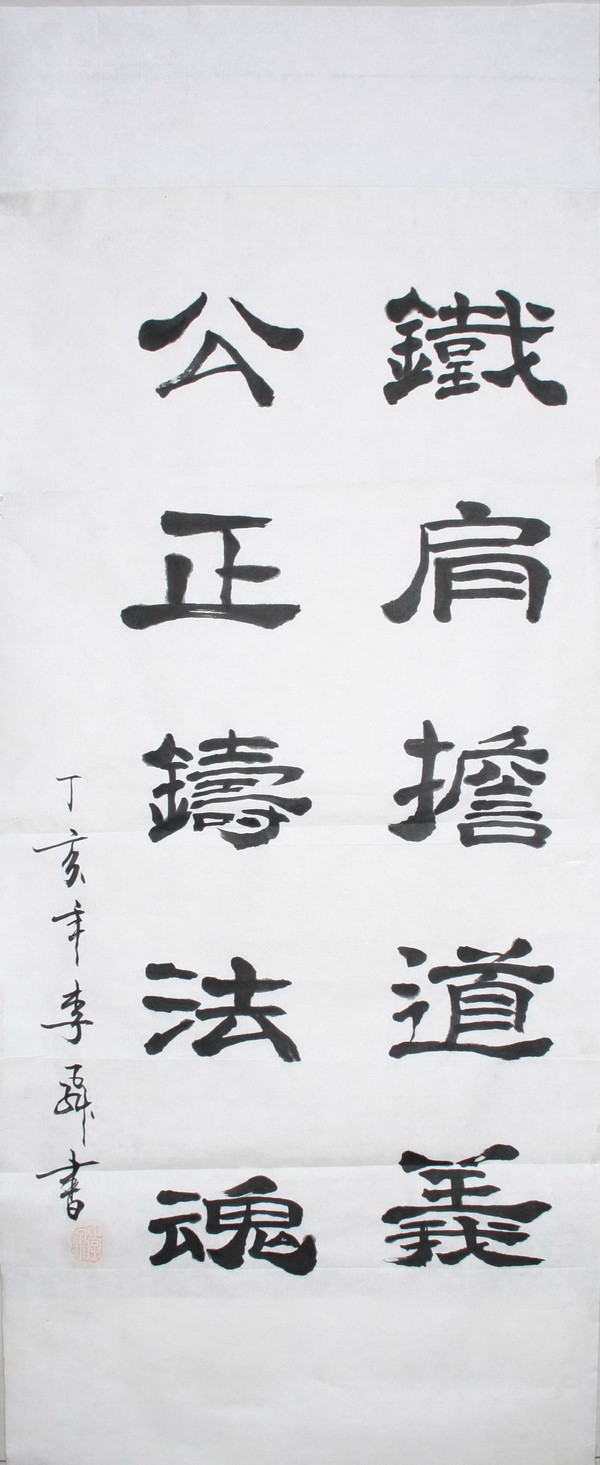 鐵肩擔道義
公正鑄法魂
丁亥年李舜書